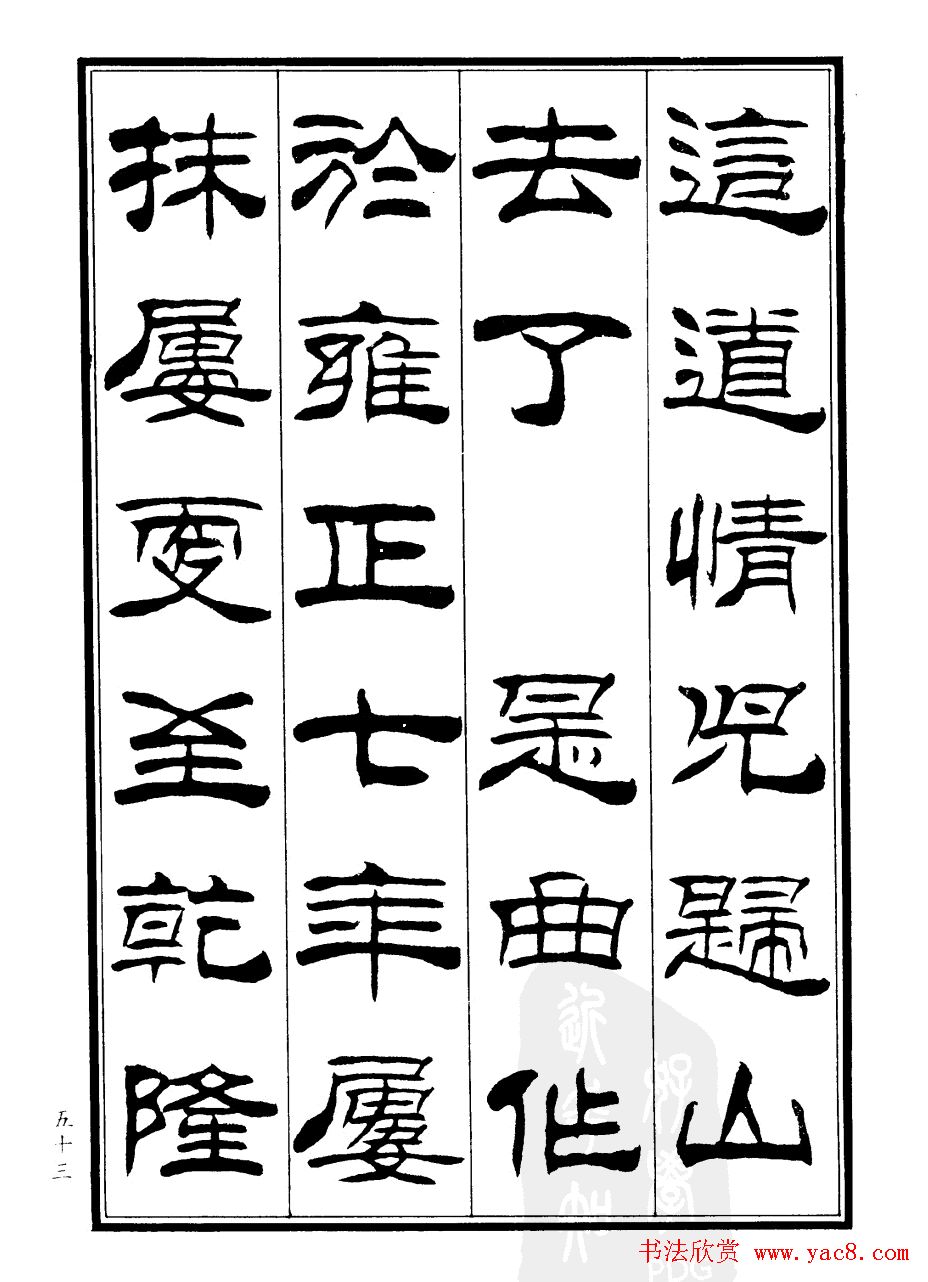 這道情兒歸山
去了 是曲作
於雍正七年屢
抹屢更至乾隆
五十三
书法欣赏 www.yac8.com
PDG